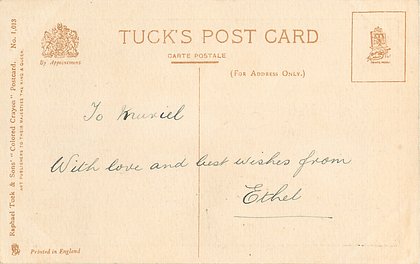 TUCK'S POST CARD
CARTE POSTALE
(FOR ADDRESS ONLY.)
By Appointment
To Muriel
With love and best wishes from
Ethel
Raphael Tuck & Sons' "Colored Crayon" Postcard, No. 1,013
ART PUBLISHERS TO THEIR MAJESTIES THE KING & QUEEN.
Printed in England